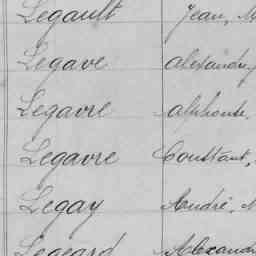 Legault Jean, M
Legave alexandre,
Legavre alphonse,
Legavre Constant,
Legay André, M
Legeard Alexandr